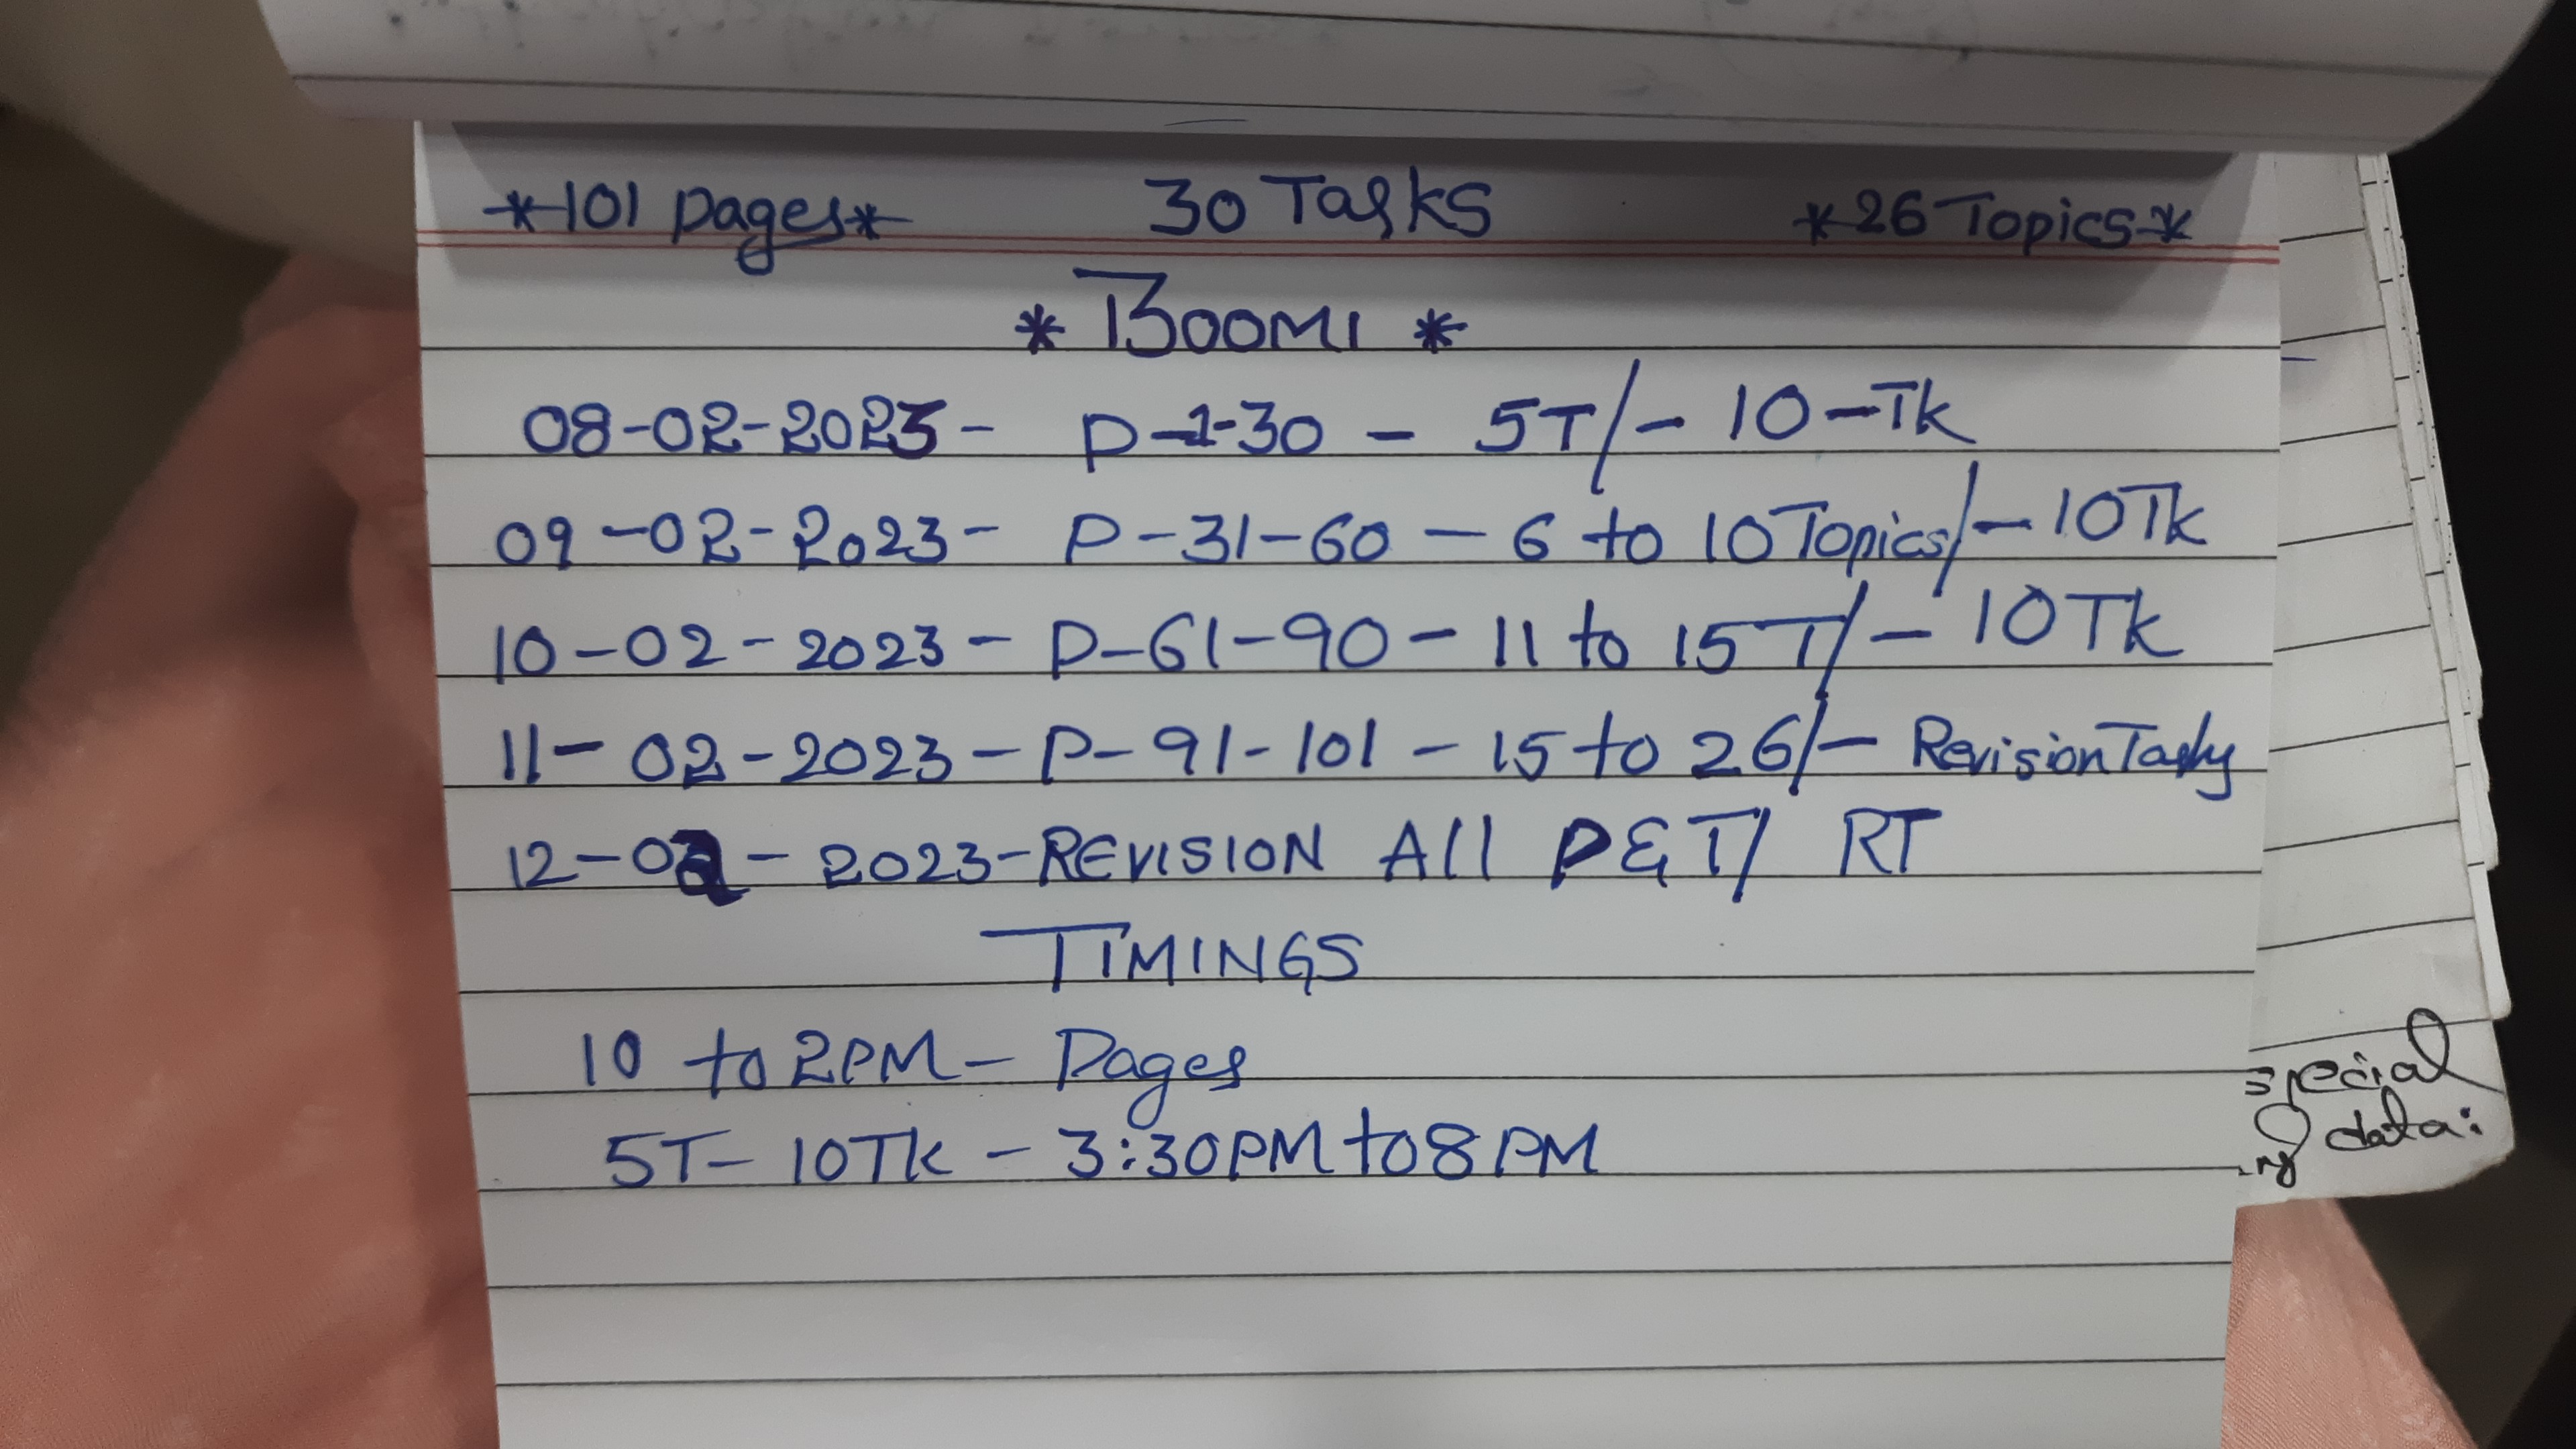 *101 Pages* 30 Tasks *26 Topics*
* BOOMI *
08-02-2023 - P-1-30 - 5T/- 10-Tk
09-02-2023- P-31-60 - 6 to 10 Topics/- 10Tk
10-02-2023- P-61-90- 11 to 15T/- 10Tk
11-02-2023- P-91-101 - 15 to 26/- Revision Tasks
12-02-2023-REVISION All P&T/ RT
TIMINGS
10 to 2PM- Pages
5T- 10Tk - 3:30PM to 8PM
special
data: